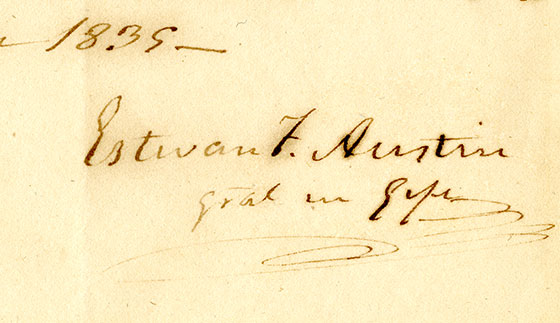 1835
Estevan F. Austin
Gral en Gefe